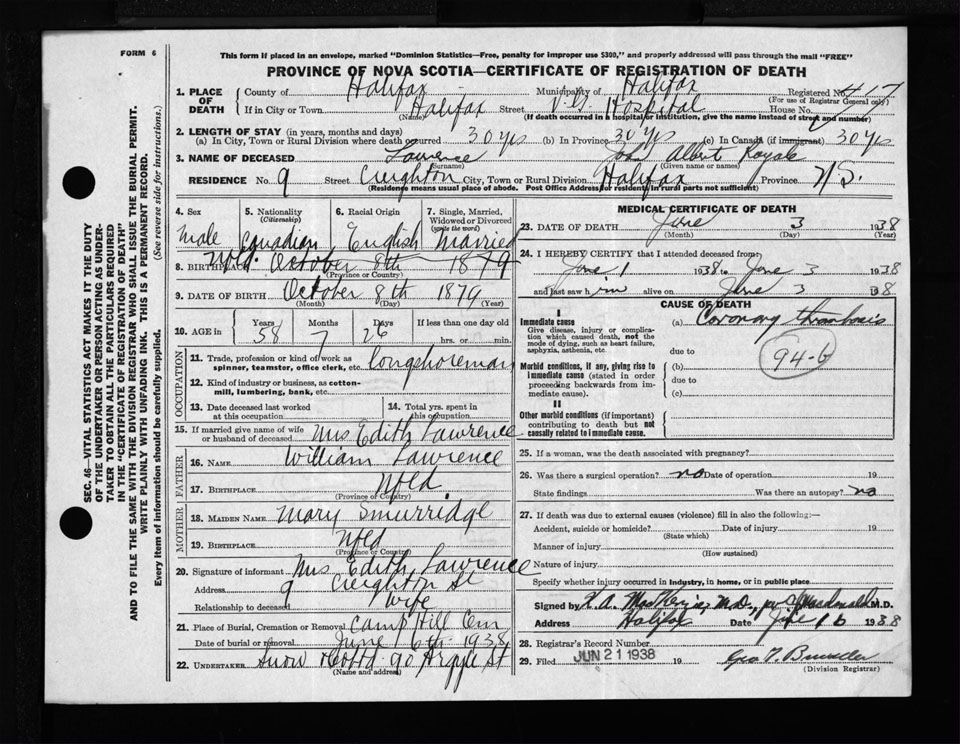 FORM 6
This form if placed in an envelope, marked "Dominion Statistics—Free, penalty for improper use $300," and properly addressed will pass through the mail "FREE"
PROVINCE OF NOVA SCOTIA—CERTIFICATE OF REGISTRATION OF DEATH
1. PLACE OF DEATH
County of Halifax Municipality of Halifax Registered No. 417
(For use of Registrar General only)
If in City or Town Halifax Street V.G. Hospital House No.
(Name) (If death occurred in a hospital or institution, give the name instead of street and number)
2. LENGTH OF STAY (in years, months and days)
(a) In City, Town or Rural Division where death occurred 30 yrs (b) In Province 30 yrs (c) In Canada (if immigrant) 30 yrs
3. NAME OF DECEASED Lawrence John Albert Royale
(Surname) (Given name or names)
RESIDENCE No. 9 Street Creighton City, Town or Rural Division Halifax Province N.S.
(Residence means usual place of abode. Post Office Address for residents in rural parts not sufficient)
4. Sex Male
5. Nationality (Citizenship) Canadian
6. Racial Origin English
7. Single, Married, Widowed or Divorced (write the word) Married
8. BIRTHPLACE Nfld. October 8th 1879
(Province or Country)
9. DATE OF BIRTH October 8th 1879
(Month) (Day) (Year)
10. AGE in Years 58 Months 7 Days 26 If less than one day old
hrs. or min.
OCCUPATION
11. Trade, profession or kind of work as spinner, teamster, office clerk, etc. Longshoreman
12. Kind of industry or business, as cotton-mill, lumbering, bank, etc.
13. Date deceased last worked at this occupation
14. Total yrs. spent in this occupation
15. If married give name of wife or husband of deceased Mrs Edith Lawrence
FATHER
16. NAME William Lawrence
17. BIRTHPLACE Nfld.
(Province or Country)
MOTHER
18. MAIDEN NAME Mary Smurridge
19. BIRTHPLACE Nfld
(Province or Country)
20. Signature of informant Mrs Edith Lawrence
Address 9 Creighton St
Relationship to deceased Wife
21. Place of Burial, Cremation or Removal Camp Hill Cem
Date of burial or removal June 6th 1938
22. UNDERTAKER Snow & Co Ltd 90 Argyle St
(Name and address)
MEDICAL CERTIFICATE OF DEATH
23. DATE OF DEATH June 3 1938
(Month) (Day) (Year)
24. I HEREBY CERTIFY that I attended deceased from
June 1 1938 to June 3 1938
and last saw him alive on June 3 1938
CAUSE OF DEATH
I
Immediate cause
Give disease, injury or complication which caused death, not the mode of dying, such as heart failure, asphyxia, asthenia, etc.
(a) Coronary thrombosis
due to
94-b
Morbid conditions, if any, giving rise to immediate cause (stated in order proceeding backwards from immediate cause).
(b)
due to
(c)
II
Other morbid conditions (if important) contributing to death but not causally related to immediate cause.
25. If a woman, was the death associated with pregnancy?
26. Was there a surgical operation? no Date of operation 19
State findings Was there an autopsy? no
27. If death was due to external causes (violence) fill in also the following:—
Accident, suicide or homicide? Date of injury 19
(State which)
Manner of injury
(How sustained)
Nature of injury
Specify whether injury occurred in industry, in home, or in public place
Signed by MacKenzie M.D., per Macdonald M.D.
Address Halifax Date June 16 1938
28. Registrar's Record Number
29. Filed JUN 21 1938 19
(Division Registrar)
SEC. 46—VITAL STATISTICS ACT MAKES IT THE DUTY
OF THE UNDERTAKER OR PERSON ACTING AS UNDER-
TAKER TO OBTAIN ALL THE PARTICULARS REQUIRED
IN THE "CERTIFICATE OF REGISTRATION OF DEATH"
AND TO FILE THE SAME WITH THE DIVISION REGISTRAR WHO SHALL ISSUE THE BURIAL PERMIT.
WRITE PLAINLY WITH UNFADING INK. THIS IS A PERMANENT RECORD.
Every item of information should be carefully supplied. (See reverse side for instructions.)